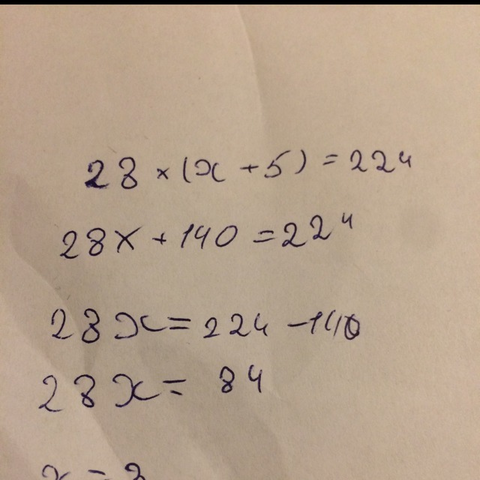 28 × (x + 5) = 224
28x + 140 = 224
28x = 224 - 140
28x = 84
x = 3